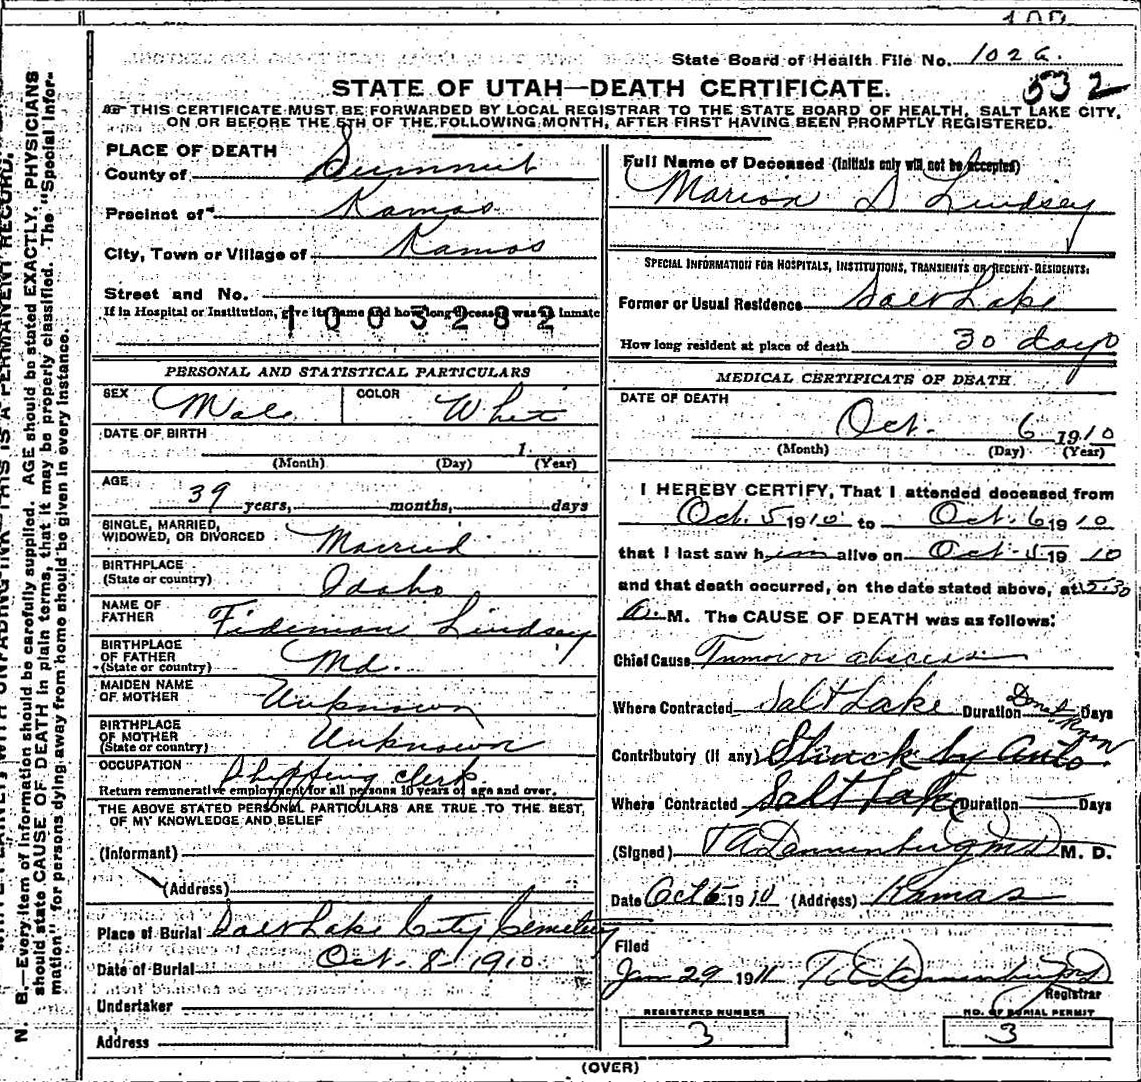 100
State Board of Health File No. 102 a.
532
STATE OF UTAH—DEATH CERTIFICATE.
THIS CERTIFICATE MUST BE FORWARDED BY LOCAL REGISTRAR TO THE STATE BOARD OF HEALTH, SALT LAKE CITY,
ON OR BEFORE THE 5TH OF THE FOLLOWING MONTH, AFTER FIRST HAVING BEEN PROMPTLY REGISTERED.
PLACE OF DEATH
County of Summit
Precinct of Kamas
City, Town or Village of Kamas
Street and No.
If in Hospital or Institution, give its name and how long deceased was an Inmate
1003282
PERSONAL AND STATISTICAL PARTICULARS
SEX Male COLOR White
DATE OF BIRTH
1
(Month) (Day) (Year)
AGE
39 years, months, days
SINGLE, MARRIED,
WIDOWED, OR DIVORCED Married
BIRTHPLACE
(State or country) Idaho
NAME OF
FATHER Fideman Lindsey
BIRTHPLACE
OF FATHER
(State or country) Md.
MAIDEN NAME
OF MOTHER Unknown
BIRTHPLACE
OF MOTHER
(State or country) Unknown
OCCUPATION Shipping clerk.
Return remunerative employment for all persons 10 years of age and over.
THE ABOVE STATED PERSONAL PARTICULARS ARE TRUE TO THE BEST
OF MY KNOWLEDGE AND BELIEF
(Informant)
(Address)
Place of Burial Salt Lake City Cemetery
Date of Burial Oct. 8 1910
Undertaker
Address
Full Name of Deceased (Initials only will not be accepted)
Marion D Lindsey
SPECIAL INFORMATION FOR HOSPITALS, INSTITUTIONS, TRANSIENTS OR RECENT RESIDENTS.
Former or Usual Residence Salt Lake
How long resident at place of death 30 days
MEDICAL CERTIFICATE OF DEATH
DATE OF DEATH
Oct. 6 1910
(Month) (Day) (Year)
I HEREBY CERTIFY, That I attended deceased from
Oct. 5 1910 to Oct. 6 1910
that I last saw him alive on Oct. 5 1910
and that death occurred, on the date stated above, at 5:30
a. M. The CAUSE OF DEATH was as follows:
Chief Cause Tumor or abscess
Where Contracted Salt Lake Duration Don't Know Days
Contributory (if any) Struck by Auto.
Where Contracted Salt Lake Duration Days
(Signed) Dannenberg MD M. D.
Date Oct 6 1910 (Address) Kamas
Filed
Jan 29 1911 Dannenberg MD
Registrar
REGISTERED NUMBER
3
NO. OF BURIAL PERMIT
3
(OVER)
THIS IS A PERMANENT RECORD.
N. B.—Every item of information should be carefully supplied. AGE should be stated EXACTLY. PHYSICIANS
should state CAUSE OF DEATH in plain terms, that it may be properly classified. The "Special Infor-
mation" for persons dying away from home should be given in every instance.